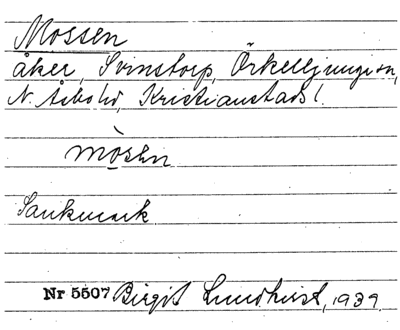 Mossen
åker, Svinstorp, Örkelljunga sn,
N. Åsbo hd, Kristianstads l.
mòsen
Sankmark
Nr 5507 Birgit Lundkvist, 1939.